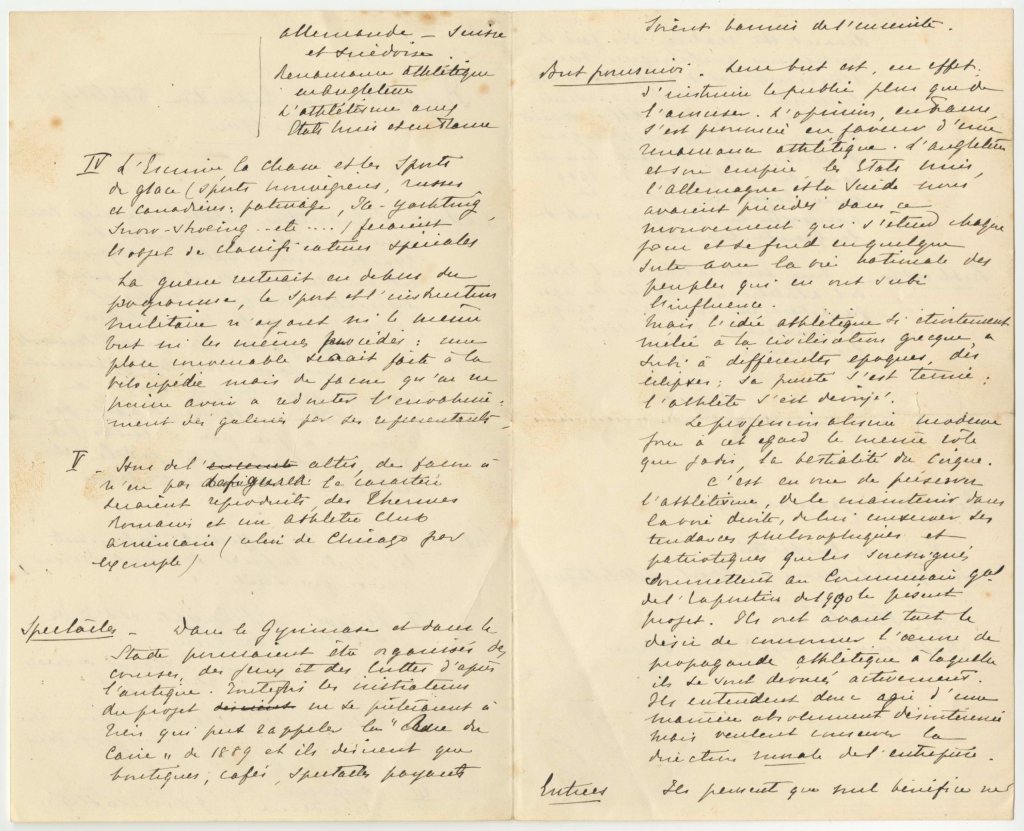 allemande – Suisse
et Suédoise
Renaissance athlétique
en Angleterre
L'athlétisme aux
Etats Unis et en France
IV L'Escrime, la Chasse et les Sports
de glace (sports norvégiens, russes
et canadiens: patinage, Ice-yachting,
Snow-shoeing.. etc ....) feraient
l'objet de classifications spéciales
La guerre resterait en dehors du
programme, le sport et l'instruction
militaire n'ayant ni le même
but ni les mêmes procédés: une
place convenable serait faite à la
vélocipédie mais de façon qu'on ne
puisse avoir à redouter l'envahisse-
ment des galeries par ses représentants_
V – Hors de l'enceinte altis, de façon à
n'en pas défigurer le caractère
seraient reproduits des Thermes
Romains et un athletic Club
américain (celui de Chicago par
exemple)
Spectacles – Dans le Gymnase et dans le
Stade pourraient être organisés des
courses, des Jeux et des luttes d'après
l'antique. Toutefois les initiateurs
du projet ne se prêteraient à
rien qui put rappeler la "Rue du
Caire" de 1889 et ils désirent que
boutiques, cafés, spectacles payants
soient bannis de l'enceinte.
But poursuivi. Leur but est, en effet,
d'instruire le public plus que de
l'amuser. L'opinion, en France
s'est prononcée en faveur d'une
renaissance athlétique. L'angleterre
et son empire, les Etats Unis,
l'allemagne et la Suède nous
avaient précédés dans ce
mouvement qui s'étend chaque
jour et se fond en quelque
sorte avec la vie nationale des
peuples qui en ont subi
l'influence.
Mais l'idée athlétique si étroitement
mêlée à la civilisation grecque, a
subi à différentes époques, des
éclipses; sa pureté s'est ternie;
l'athlète s'est dévoyé.
Le professionalisme moderne
joue à cet égard le même rôle
que jadis, la bestialité du Cirque.
C'est en vue de préserver
l'athlétisme, de le maintenir dans
la voie droite, de lui conserver ses
tendances philosophiques et
patriotiques que les soussignés
soumettent au Commissaire gal
de l'Exposition de 1900 le présent
projet. Ils ont avant tout le
désir de couronner l'oeuvre de
propagande athlétique à laquelle
ils se sont dévoués activement.
Ils entendent donc agir d'une
manière absolument désintéressée
mais veulent conserver la
direction morale de l'entreprise.
Entrées Ils pensent que nul bénéfice ne